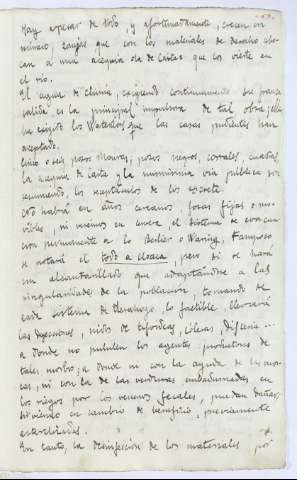 -53-
Hay apesar de todo y afortunadamente, crecen en
número, zanjas que con los materiales de desecho abo-
can a una acequia ola de Caites que los vierte en
el rio.
El agua de lluvia, exigiendo continuamente su franca
salida es la principal impulsora de tal obra; ella
ha exigido los Waterclos que las casas pudientes han
aceptado.
Cinco o seis pozos Mouras, pozos negros, corrales, cuadras,
la acequia de Caite y la numerosa via publica por
seguimiento, los receptáculos de los
No habrá en años cercanos fosas fijas o mo-
viles, ni veremos en Cuenca el sistema de evacua-
cion permanente a lo Berlier o Waring, tampoco
se notará el todo a cloaca, pero si se hará
un alcantarillado que adaptandose a las
singularidades de la población, tomando de
cada sistema de Desahogo, lo factible, llevará
las deyecciones, nidos de tifoideas, cóleras, difteria...
a donde no pululen los agentes productores de
tales morbos; a donde ni con la ayuda de las moscas
, ni con la de las verduras embadurnadas en
los riegos por los venenos fecales, puedan dañar,
sirviendo en cambio de beneficio, previamente
esterelizadas.
En tanto, la desinfección de los materiales por